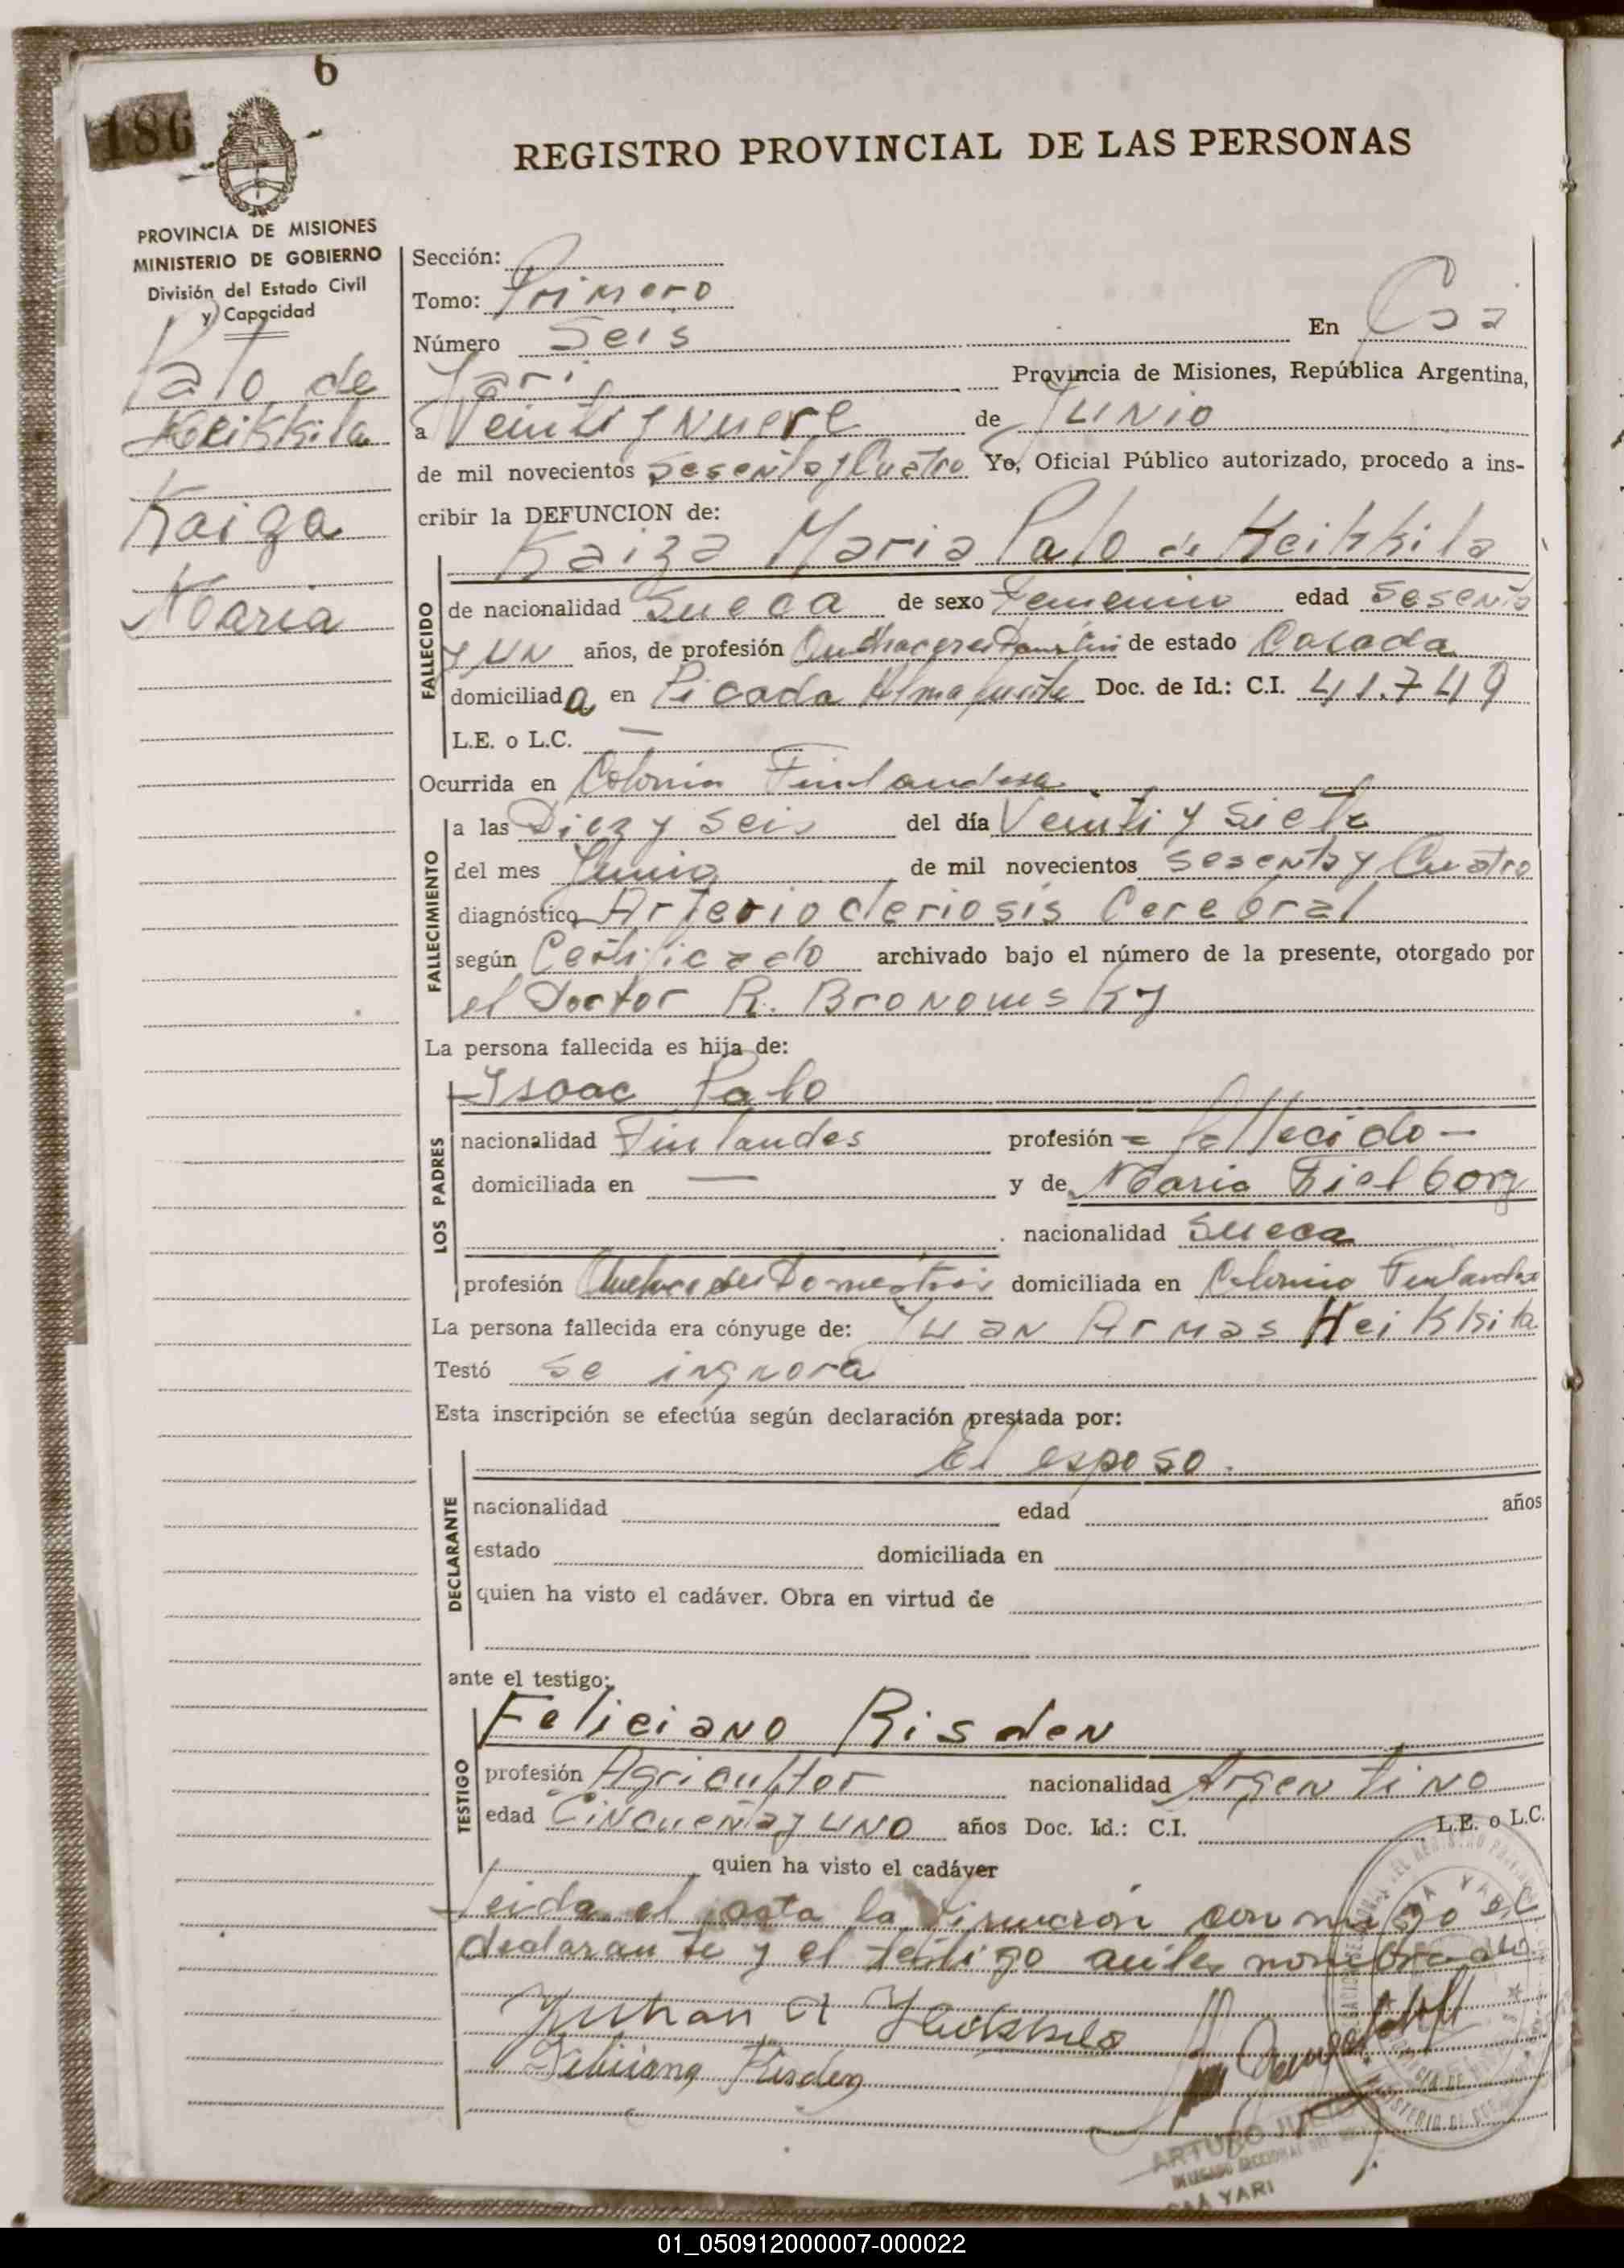 6
186
REGISTRO PROVINCIAL DE LAS PERSONAS
PROVINCIA DE MISIONES
MINISTERIO DE GOBIERNO
División del Estado Civil
y Capacidad
Palo de
Heikkila
Kaiga
Maria
Sección:
Tomo: Primero
Número Seis En Caá
Yari Provincia de Misiones, República Argentina,
a Veinti y nueve de Junio
de mil novecientos sesenta y Cuatro Yo, Oficial Público autorizado, procedo a ins-
cribir la DEFUNCION de:
Kaiza Maria Palo de Heikkila
FALLECIDO
de nacionalidad Sueca de sexo Femenino edad Sesenta
y un años, de profesión de estado Casada
domiciliada en Picada Almafuerte Doc. de Id.: C.I. 41.749
L.E. o L.C. —
Ocurrida en Colonia Finlandesa
FALLECIMIENTO
a las Diez y seis del día Veinti y siete
del mes Junio de mil novecientos sesenta y Cuatro
diagnóstico Arteriocleriosis Cerebral
según Certificado archivado bajo el número de la presente, otorgado por
el Doctor R. Bronowsky
La persona fallecida es hija de:
LOS PADRES
Isaac Palo
nacionalidad Finlandes profesión = fallecido —
domiciliada en — y de Maria
nacionalidad Sueca
profesión Quehaceres Domesticos domiciliada en Colonia Finlandesa
La persona fallecida era cónyuge de: Juan Armas Heikkila
Testó se ingnora
Esta inscripción se efectúa según declaración prestada por:
DECLARANTE
El esposo.
nacionalidad edad años
estado domiciliada en
quien ha visto el cadáver. Obra en virtud de
ante el testigo:
TESTIGO
Feliciano Risden
profesión Agricultor nacionalidad Argentino
edad Cincuenta y uno años Doc. Id.: C.I. L.E. o L.C.
quien ha visto el cadáver
Leida el acta la firmaron conmigo el
declarante y el testigo antes nombrado
Juhan A Heikkila
Feliciano Risden
ARTURO
CAA YARI
01_050912000007-000022